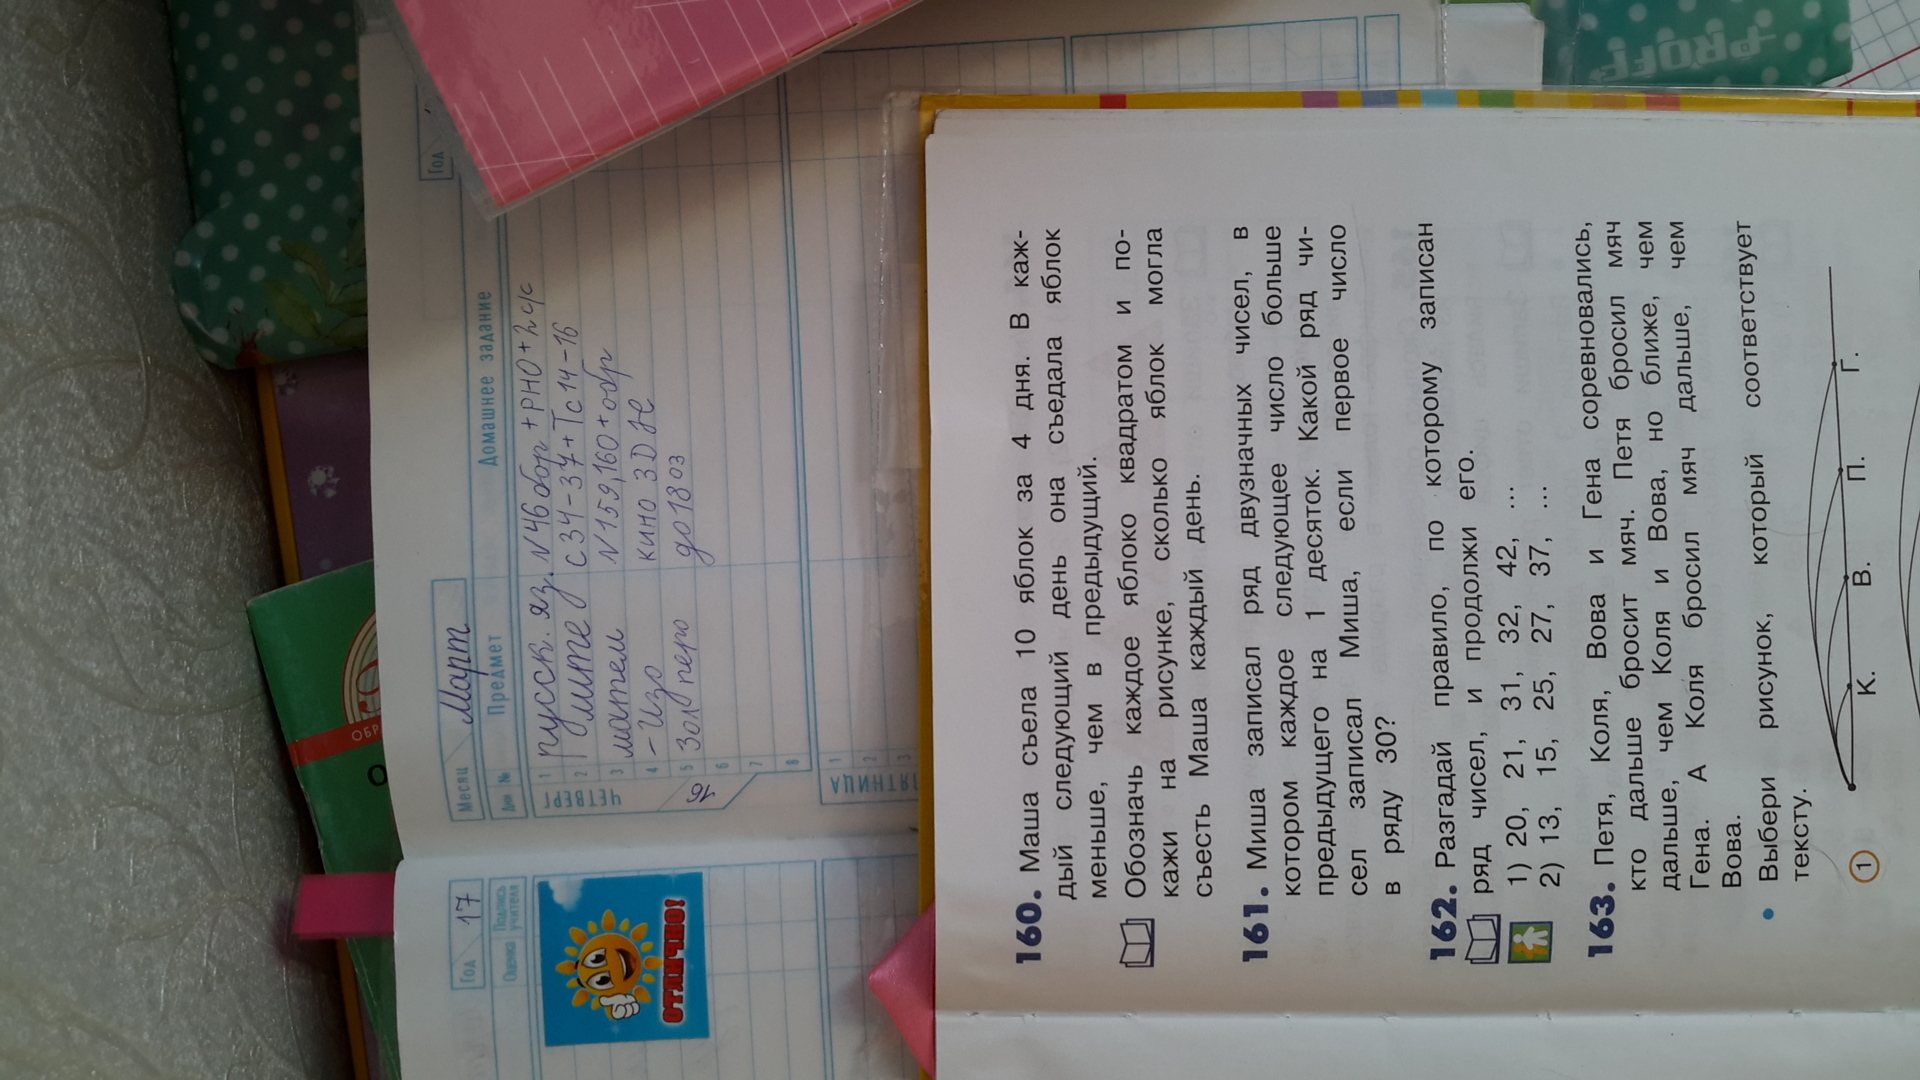 Месяц Март
Дни № Предмет Домашнее задание
Год
ЧЕТВЕРГ
16
1 русск. яз. N 46 обор + РНО + 2 с/с
2 лите с 34-37 + Тс 14-16
3 матем N 159, 160 + обр
4 - Изо кино 3D
5 Зол перо до 18 03
6
7
8
ПЯТНИЦА
1
2
3
Год 17
Оценка Подпись учителя
ОТЛИЧНО!
PROFF
160. Маша съела 10 яблок за 4 дня. В каж-
дый следующий день она съедала яблок
меньше, чем в предыдущий.
Обозначь каждое яблоко квадратом и по-
кажи на рисунке, сколько яблок могла
съесть Маша каждый день.
161. Миша записал ряд двузначных чисел, в
котором каждое следующее число больше
предыдущего на 1 десяток. Какой ряд чи-
сел записал Миша, если первое число
в ряду 30?
162. Разгадай правило, по которому записан
ряд чисел, и продолжи его.
1) 20, 21, 31, 32, 42, ...
2) 13, 15, 25, 27, 37, ...
163. Петя, Коля, Вова и Гена соревновались,
кто дальше бросит мяч. Петя бросил мяч
дальше, чем Коля и Вова, но ближе, чем
Гена. А Коля бросил мяч дальше, чем
Вова.
• Выбери рисунок, который соответствует
тексту.
1
К. В. П. Г.